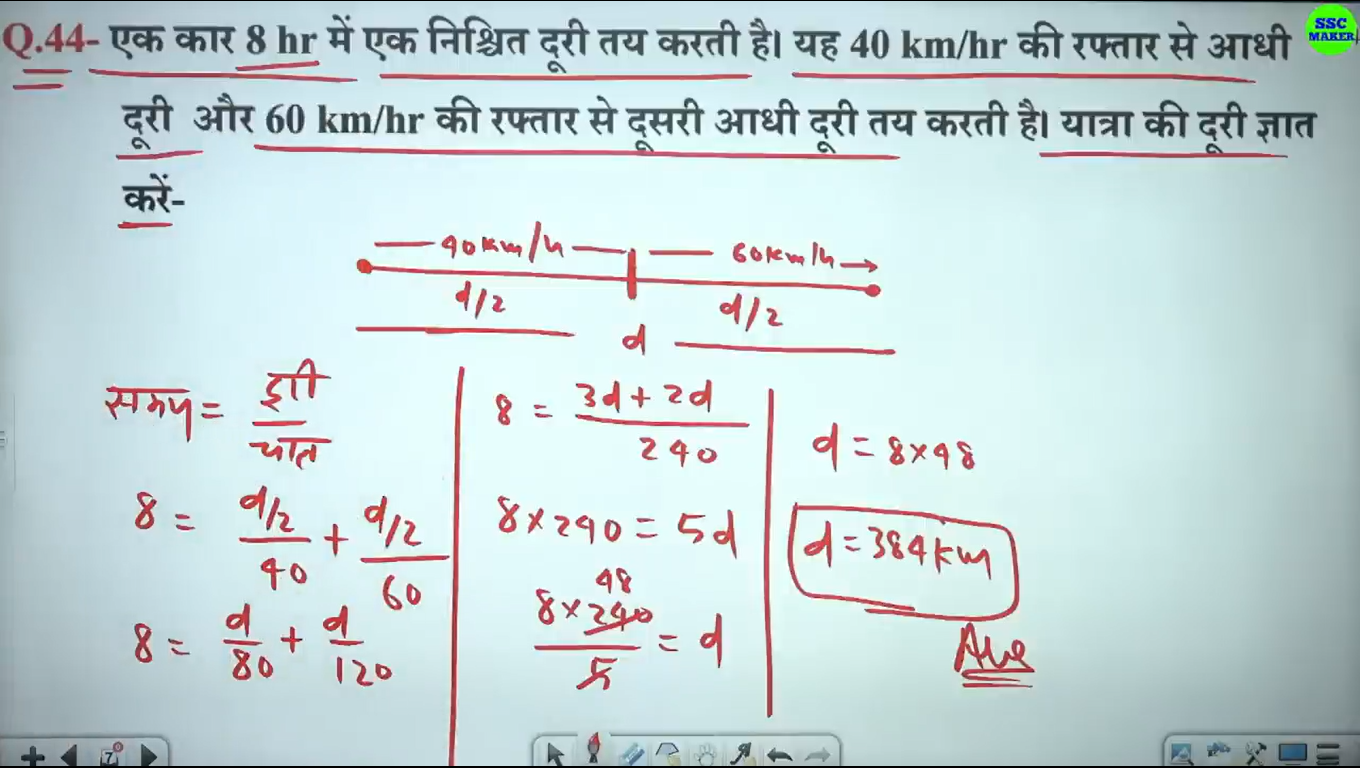 Q.44- एक कार 8 hr में एक निश्चित दूरी तय करती है। यह 40 km/hr की रफ्तार से आधी
दूरी और 60 km/hr की रफ्तार से दूसरी आधी दूरी तय करती है। यात्रा की दूरी ज्ञात
करें-
SSC
MAKER
40km/h 60km/h
d/2 d/2
d
समय = दूरी / चाल
8 = d/2 / 40 + d/2 / 60
8 = d/80 + d/120
8 = 3d + 2d / 240
8 × 240 = 5d
48
8 × 240 / 5 = d
d = 8 × 48
d = 384 km
Ans
7